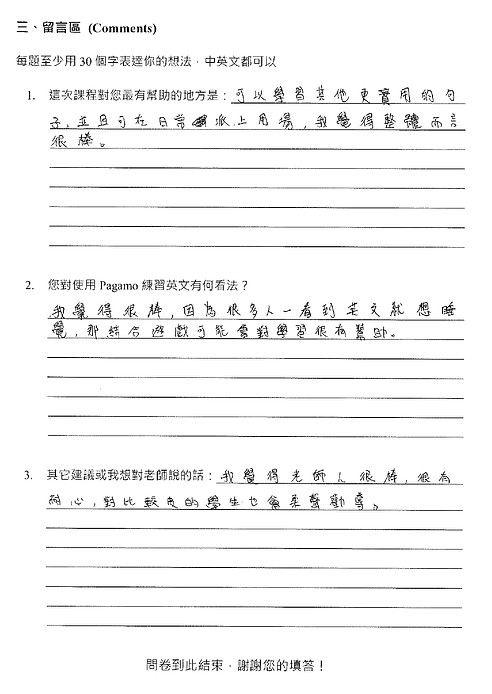 三、留言區 (Comments)
每題至少用 30 個字表達你的想法，中英文都可以
1. 這次課程對您最有幫助的地方是：可以學習其他更實用的句
子，並且可在日常派上用場，我覺得整體而言
很棒。
2. 您對使用 Pagamo 練習英文有何看法？
我覺得很棒，因為很多人一看到英文就想睡
覺，那結合遊戲可能會對學習很有幫助。
3. 其它建議或我想對老師說的話：我覺得老師人很棒，很有
耐心，對比較皮的學生也會柔聲勸導。
問卷到此結束，謝謝您的填答！